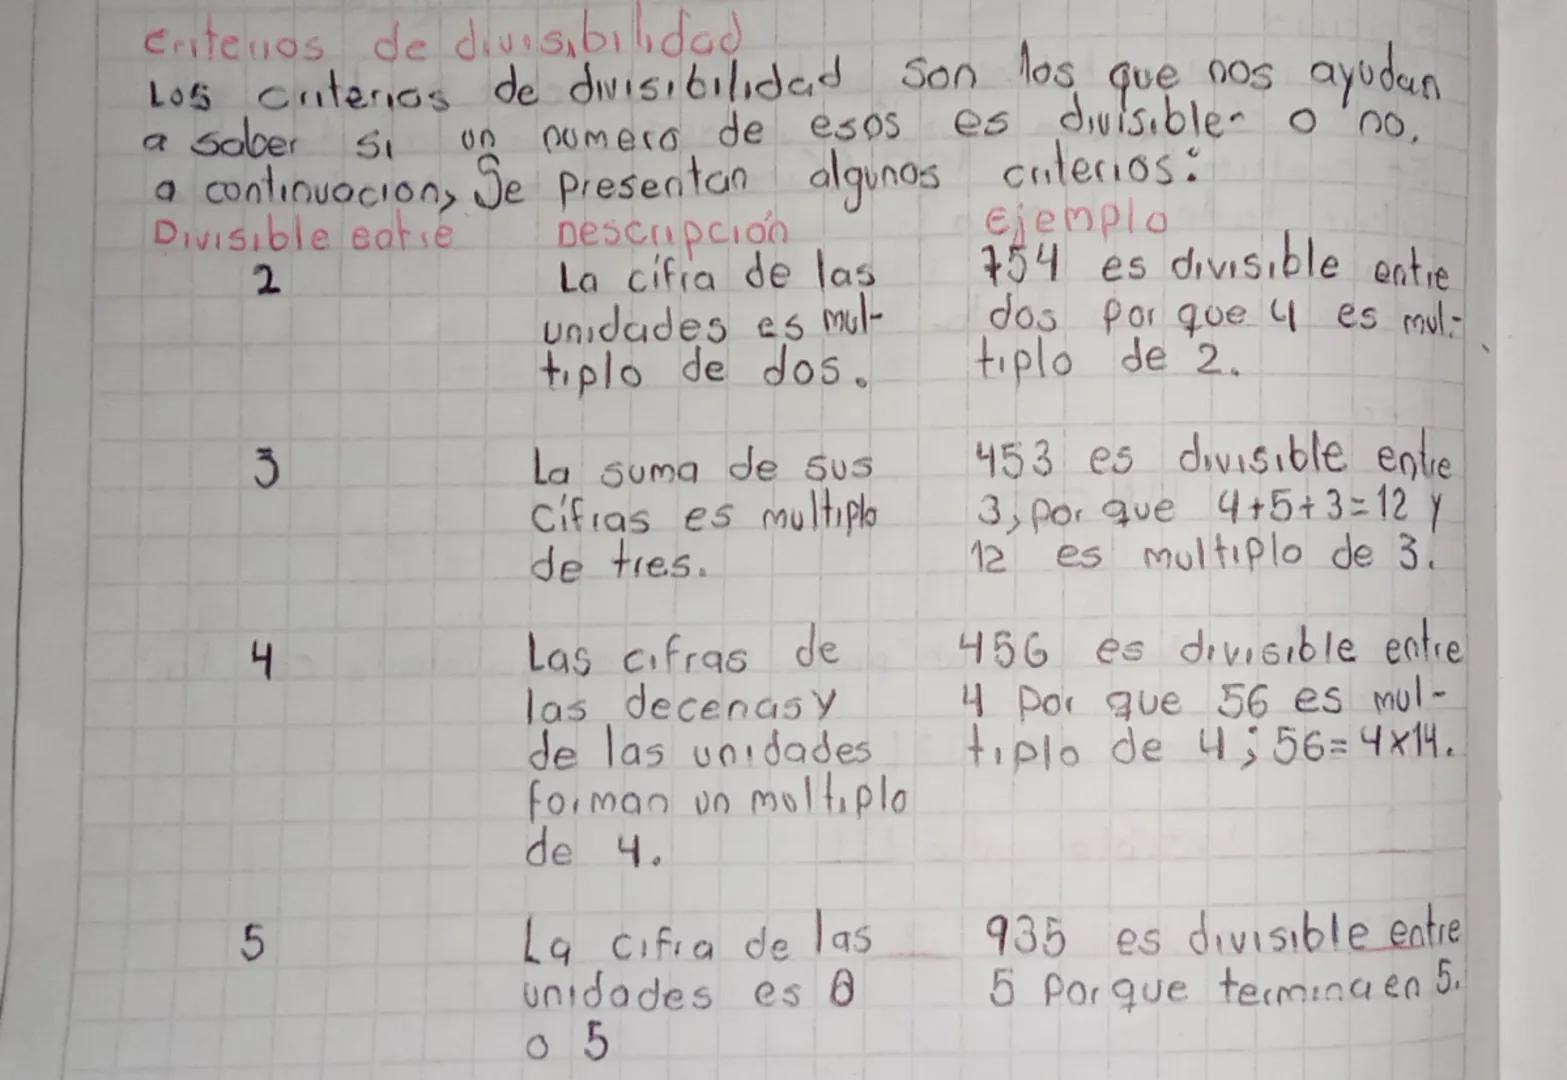 Criterios de divisibilidad
Los criterios de divisibilidad son los que nos ayudan
a saber si un numero de esos es divisible o no.
a continuacion, Se presentan algunos criterios:
Divisible entre Descripción Ejemplo
2 La cifra de las 754 es divisible entre
unidades es mul- dos por que 4 es mul-
tiplo de dos. tiplo de 2.
3 La suma de sus 453 es divisible entre
cifras es multiplo 3, por que 4+5+3=12 y
de tres. 12 es multiplo de 3.
4 Las cifras de 456 es divisible entre
las decenas y 4 por que 56 es mul-
de las unidades tiplo de 4; 56=4x14.
forman un moltiplo
de 4.
5 La cifra de las 935 es divisible entre
unidades es 0 5 porque termina en 5.
o 5